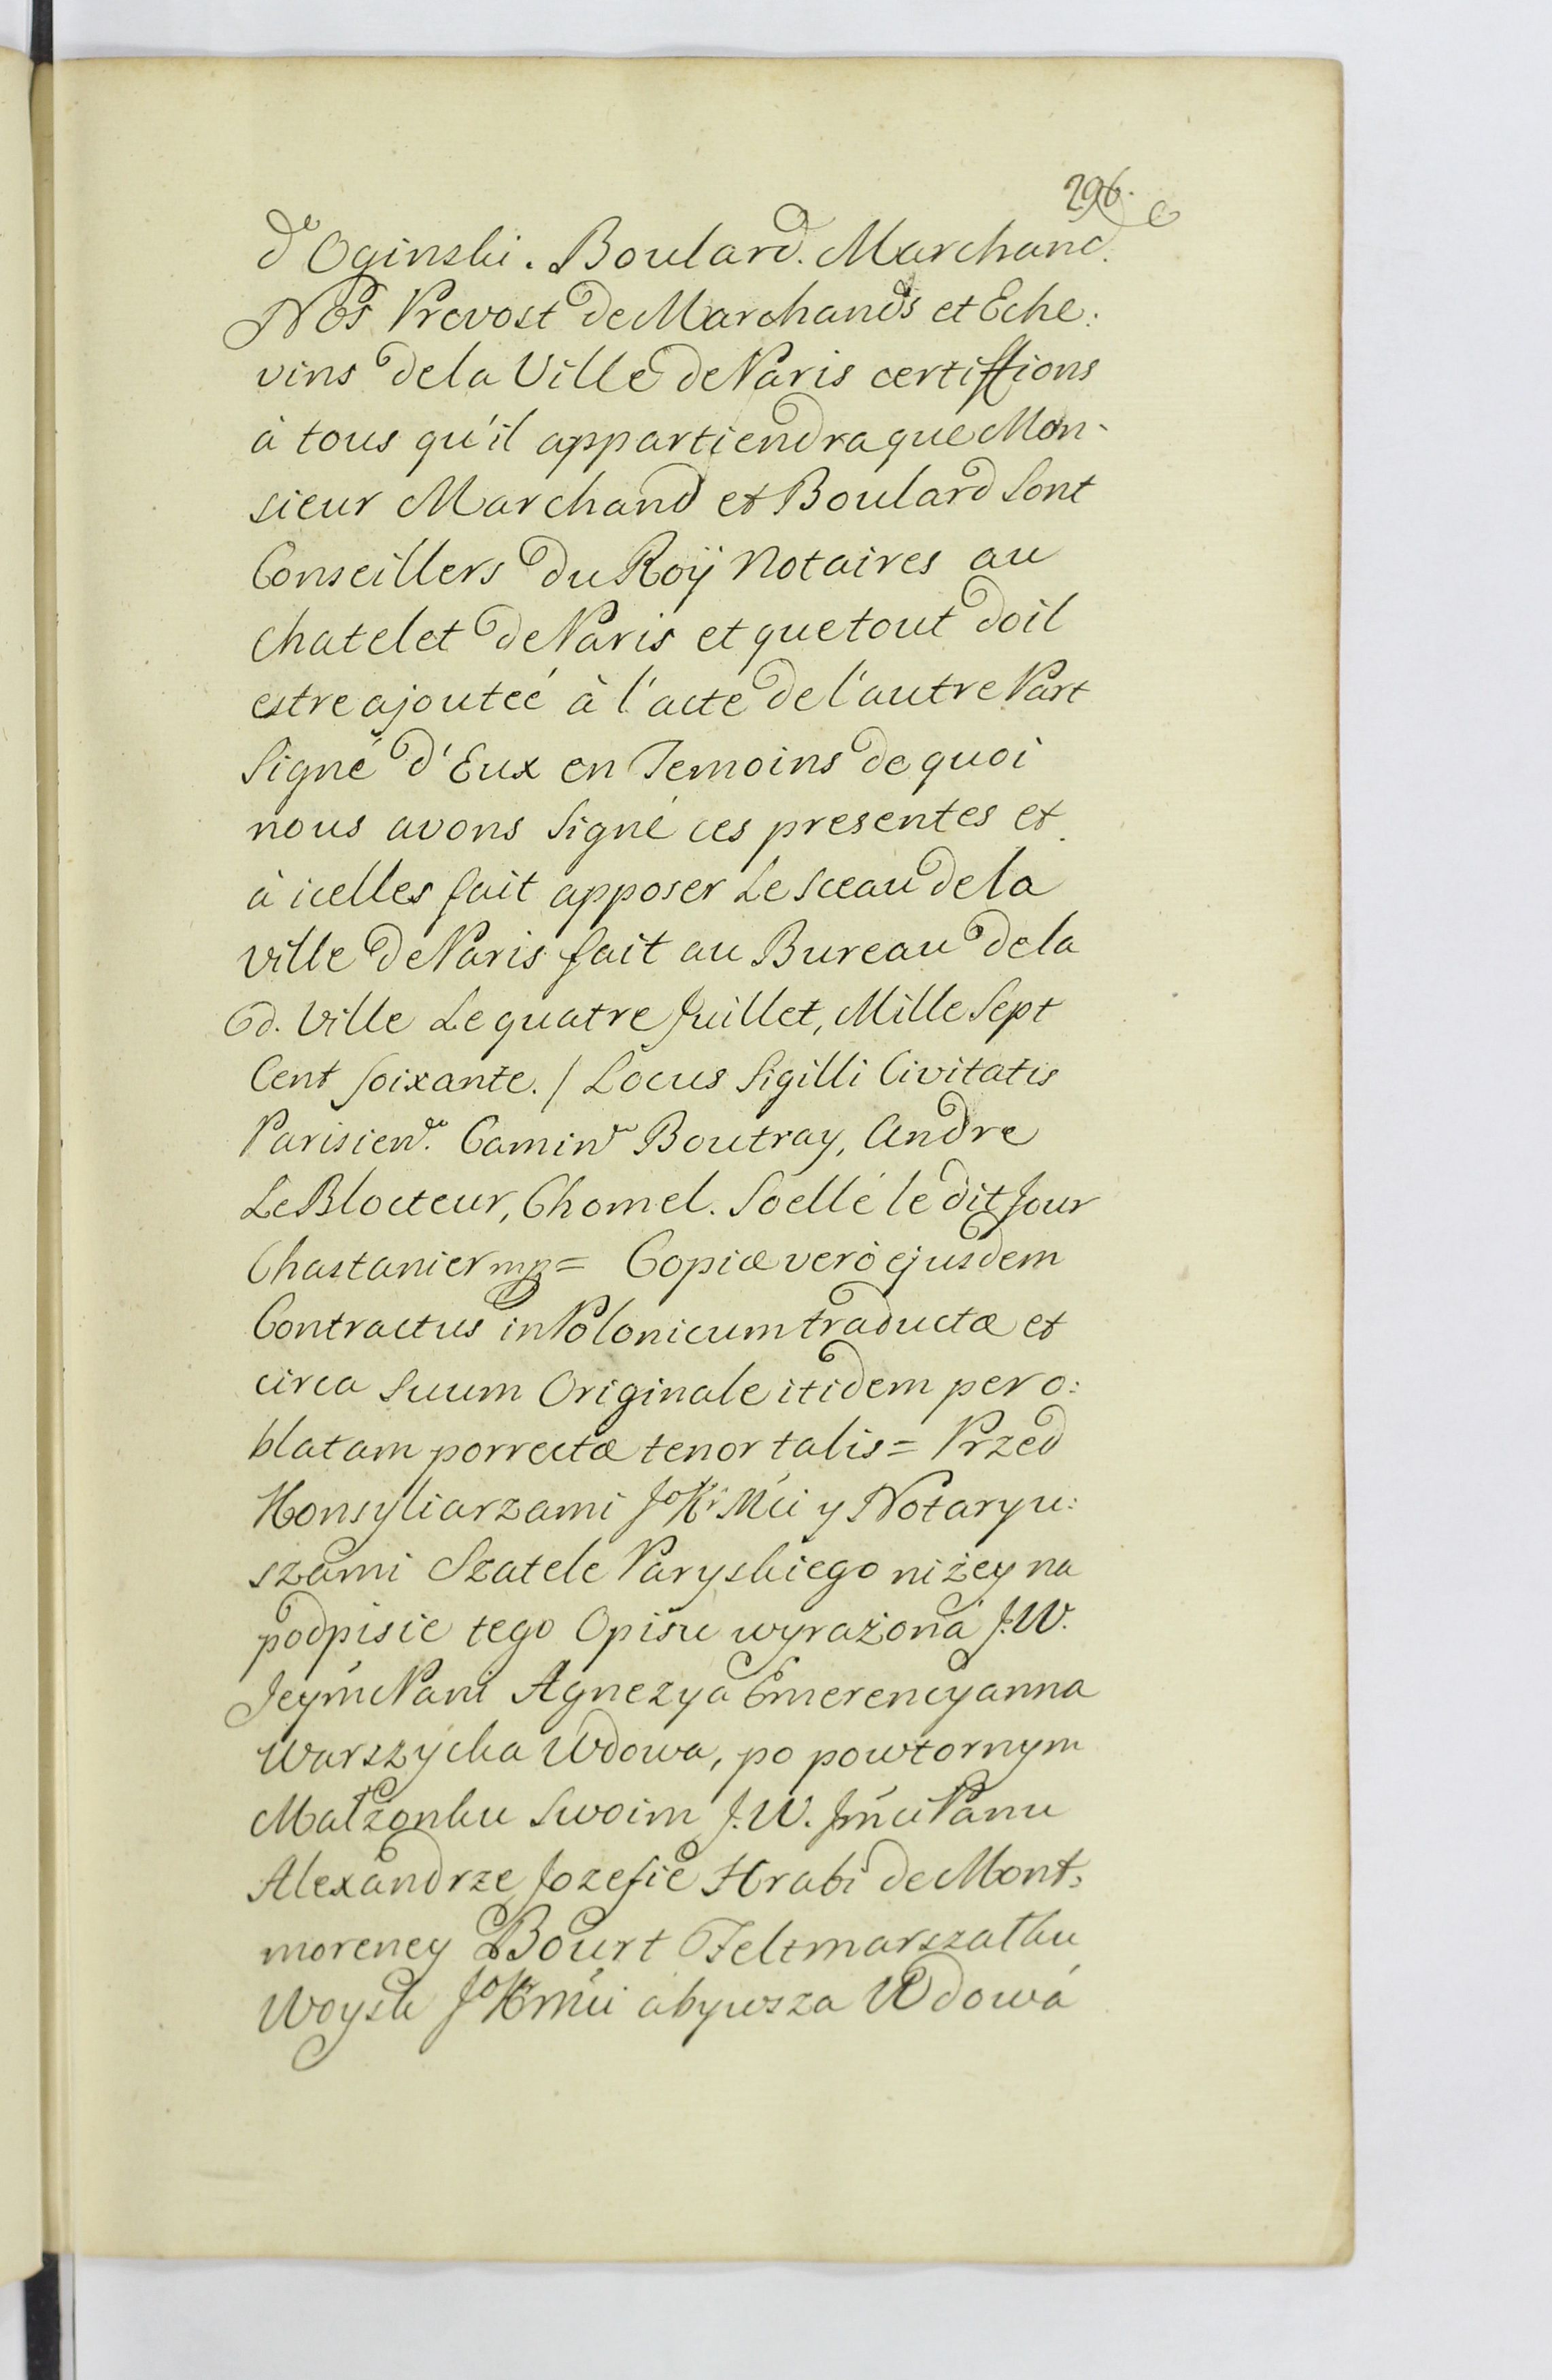 296.
d'Oginski. Boulard. Marchand.
Nos Prevost de Marchands et Eche:
vins de la Ville de Paris certiffions
à tous qu'il appartiendra que Mon-
sieur Marchand et Boulard sont
Conseillers du Roÿ Notaires au
Chatelet de Paris et que tout doil
estre ajouteé à l'acte de l'autre Part
Signé d'Eux en Temoins de quoi
nous avons Signé ces presentes et
à icelles fait apposer Le Sceau de la
ville de Paris fait au Bureau de la
d. Ville Le quatre Juillet, Mille Sept
Cent soixante. / Locus Sigilli Civitatis
Parisien. Camin Boutray, Andre
Le Blocteur, Chomel. Soellé le dit Jour
Chastanier mp = Copiæ verò ejusdem
Contractus in Polonicum traductæ et
circa suum Originale itidem per o:
blatam porrectæ tenor talis = Przed
Konsyliarzami JoKr Mci y Notaryu:
szami Szatele Paryskiego niżey na
podpisie tego Opisu wyrażoná J.W.
Jeymć Pani Agnezya Emerencyanna
Warszycka Wdowa, po powtornym
Małżonku Swoim J.W. Jmci Panu
Alexandrze Jozefie Hrabi de Mont:
morency Bourt Feltmarszałku
Woysk JoKrmci abywsza Wdową